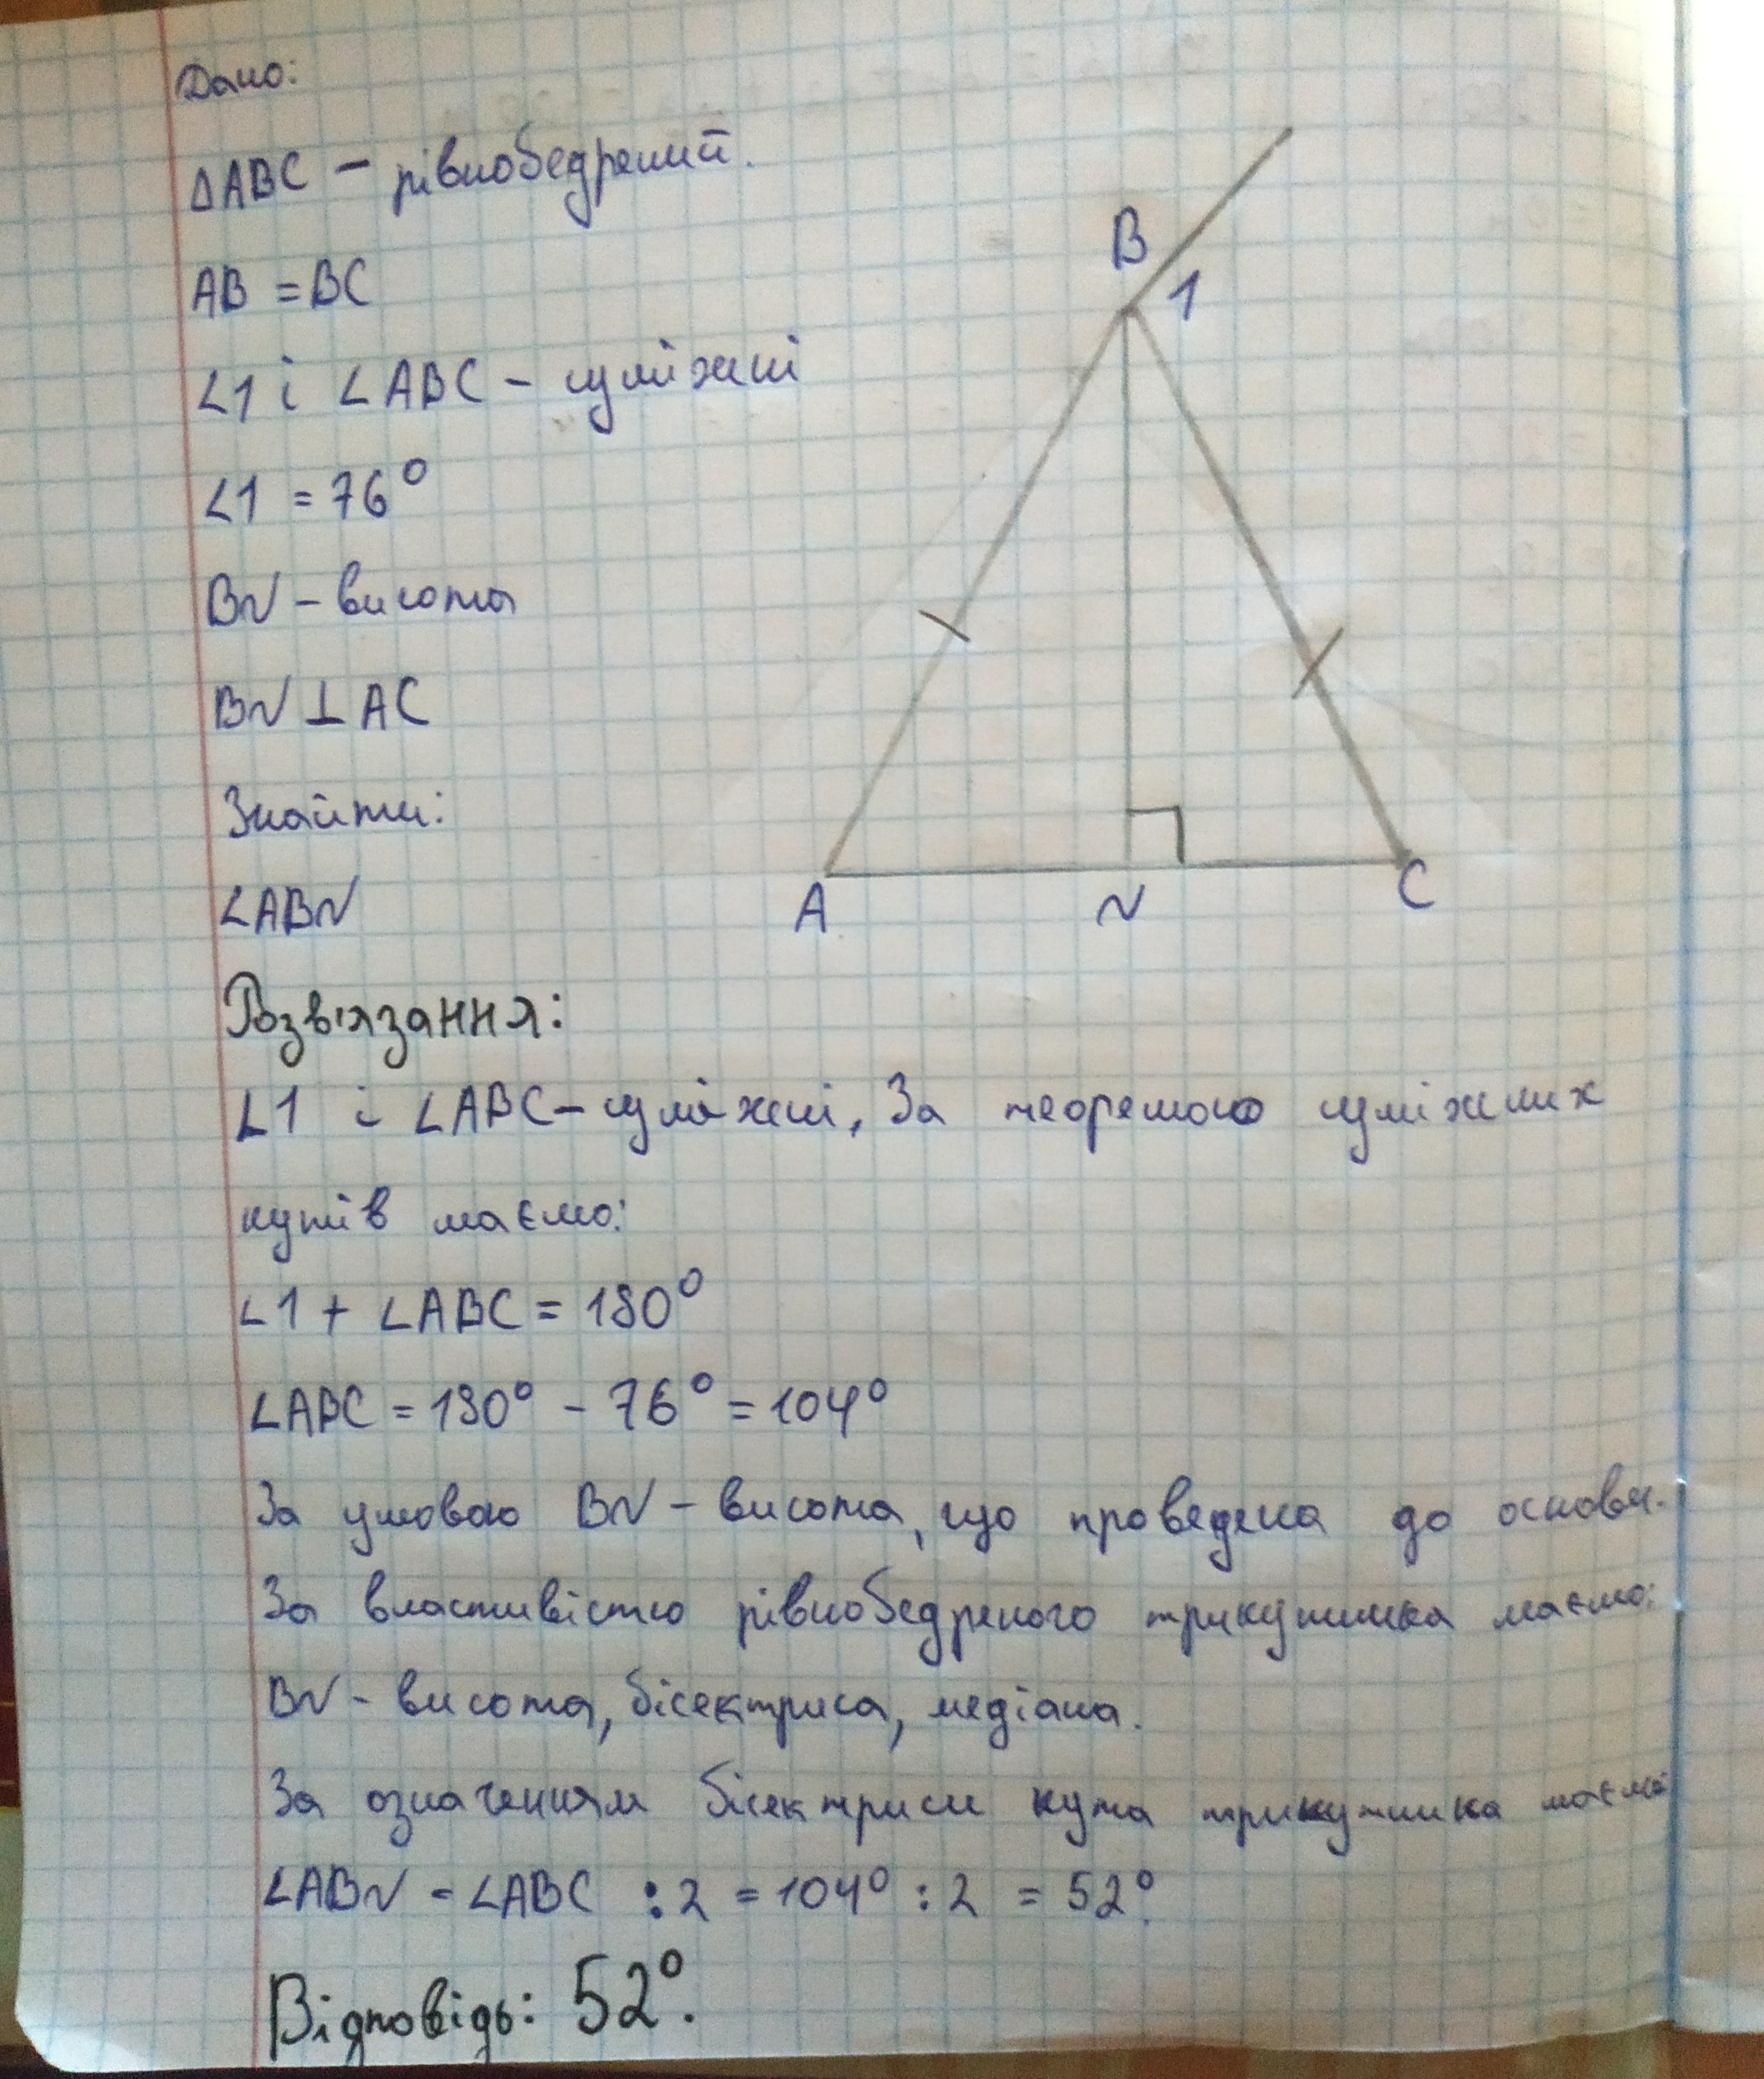 Дано:
ΔABC - рівнобедрений.
AB = BC
∠1 і ∠ABC - суміжні
∠1 = 76°
BN - висота
BN ⊥ AC
Знайти:
∠ABN
B
1
A
N
C
Розв'язання:
∠1 і ∠ABC - суміжні, За теоремою суміжних
кутів маємо:
∠1 + ∠ABC = 180°
∠ABC = 180° - 76° = 104°
За умовою BN - висота, що проведена до основи.
За властивістю рівнобедреного трикутника маємо:
BN - висота, бісектриса, медіана.
За означенням бісектриси кута трикутника маємо
∠ABN = ∠ABC : 2 = 104° : 2 = 52°.
Відповідь: 52°.